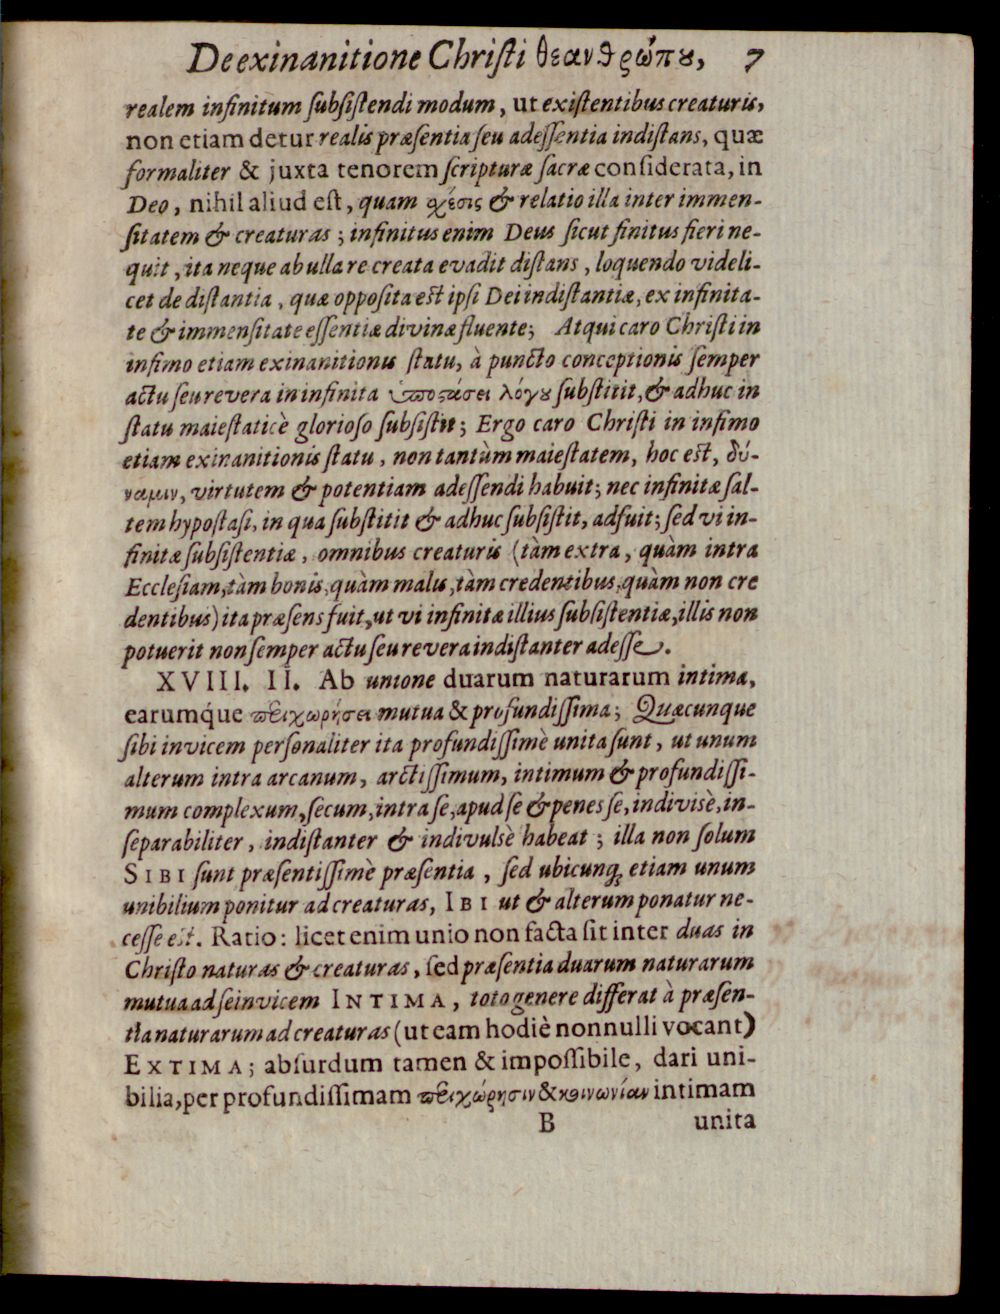 De exinanitione Christi θεανθρώπου, 7
realem infinitum subsistendi modum, ut existentibus creaturis,
non etiam detur realis præsentia seu adessentia indistans, quæ
formaliter & juxta tenorem scripturæ sacræ considerata, in
Deo, nihil aliud est, quam σχέσις & relatio illa inter immen-
sitatem & creaturas; infinitus enim Deus sicut finitus fieri ne-
quit, ita neque ab ulla re creata evadit distans, loquendo videli-
cet de distantia, quæ opposita est ipsi Dei indistantiæ, ex infinita-
te & immensitate essentiæ divinæ fluente; Atqui caro Christi in
infimo etiam exinanitionis statu, à puncto conceptionis semper
actu seu revera in infinita ὑποστάσει λόγου substitit, & adhuc in
statu maiestaticè glorioso subsistit; Ergo caro Christi in infimo
etiam exinanitionis statu, non tantùm maiestatem, hoc est, δύ-
ναμιν, virtutem & potentiam adessendi habuit; nec infinitæ sal-
tem hypostasi, in qua substitit & adhuc subsistit, adfuit; sed vi in-
finitæ subsistentiæ, omnibus creaturis (tàm extra, quàm intra
Ecclesiam, tàm bonis, quàm malis, tàm credentibus, quàm non cre
dentibus) ita præsens fuit, ut vi infinitæ illius subsistentiæ, illis non
potuerit non semper actu seu revera indistanter adesse.
XVIII. II. Ab unione duarum naturarum intima,
earumq́ue περιχωρήσει mutua & profundissima; Quæcunque
sibi invicem personaliter ita profundissimè unita sunt, ut unum
alterum intra arcanum, arctissimum, intimum & profundissi-
mum complexum, secum, intra se, apud se & penes se, indivisè, in-
separabiliter, indistanter & indivulsè habeat; illa non solum
SIBI sunt præsentissimè præsentia, sed ubicunq; etiam unum
unibilium ponitur ad creaturas, IBI ut & alterum ponatur ne-
cesse est. Ratio: licet enim unio non facta sit inter duas in
Christo naturas & creaturas, sed præsentia duarum naturarum
mutua ad seinvicem INTIMA, toto genere differat à præsen-
tia naturarum ad creaturas (ut eam hodiè nonnulli vocant)
EXTIMA; absurdum tamen & impossibile, dari uni-
bilia, per profundissimam περιχώρησιν & κοινωνίαν intimam
B unita